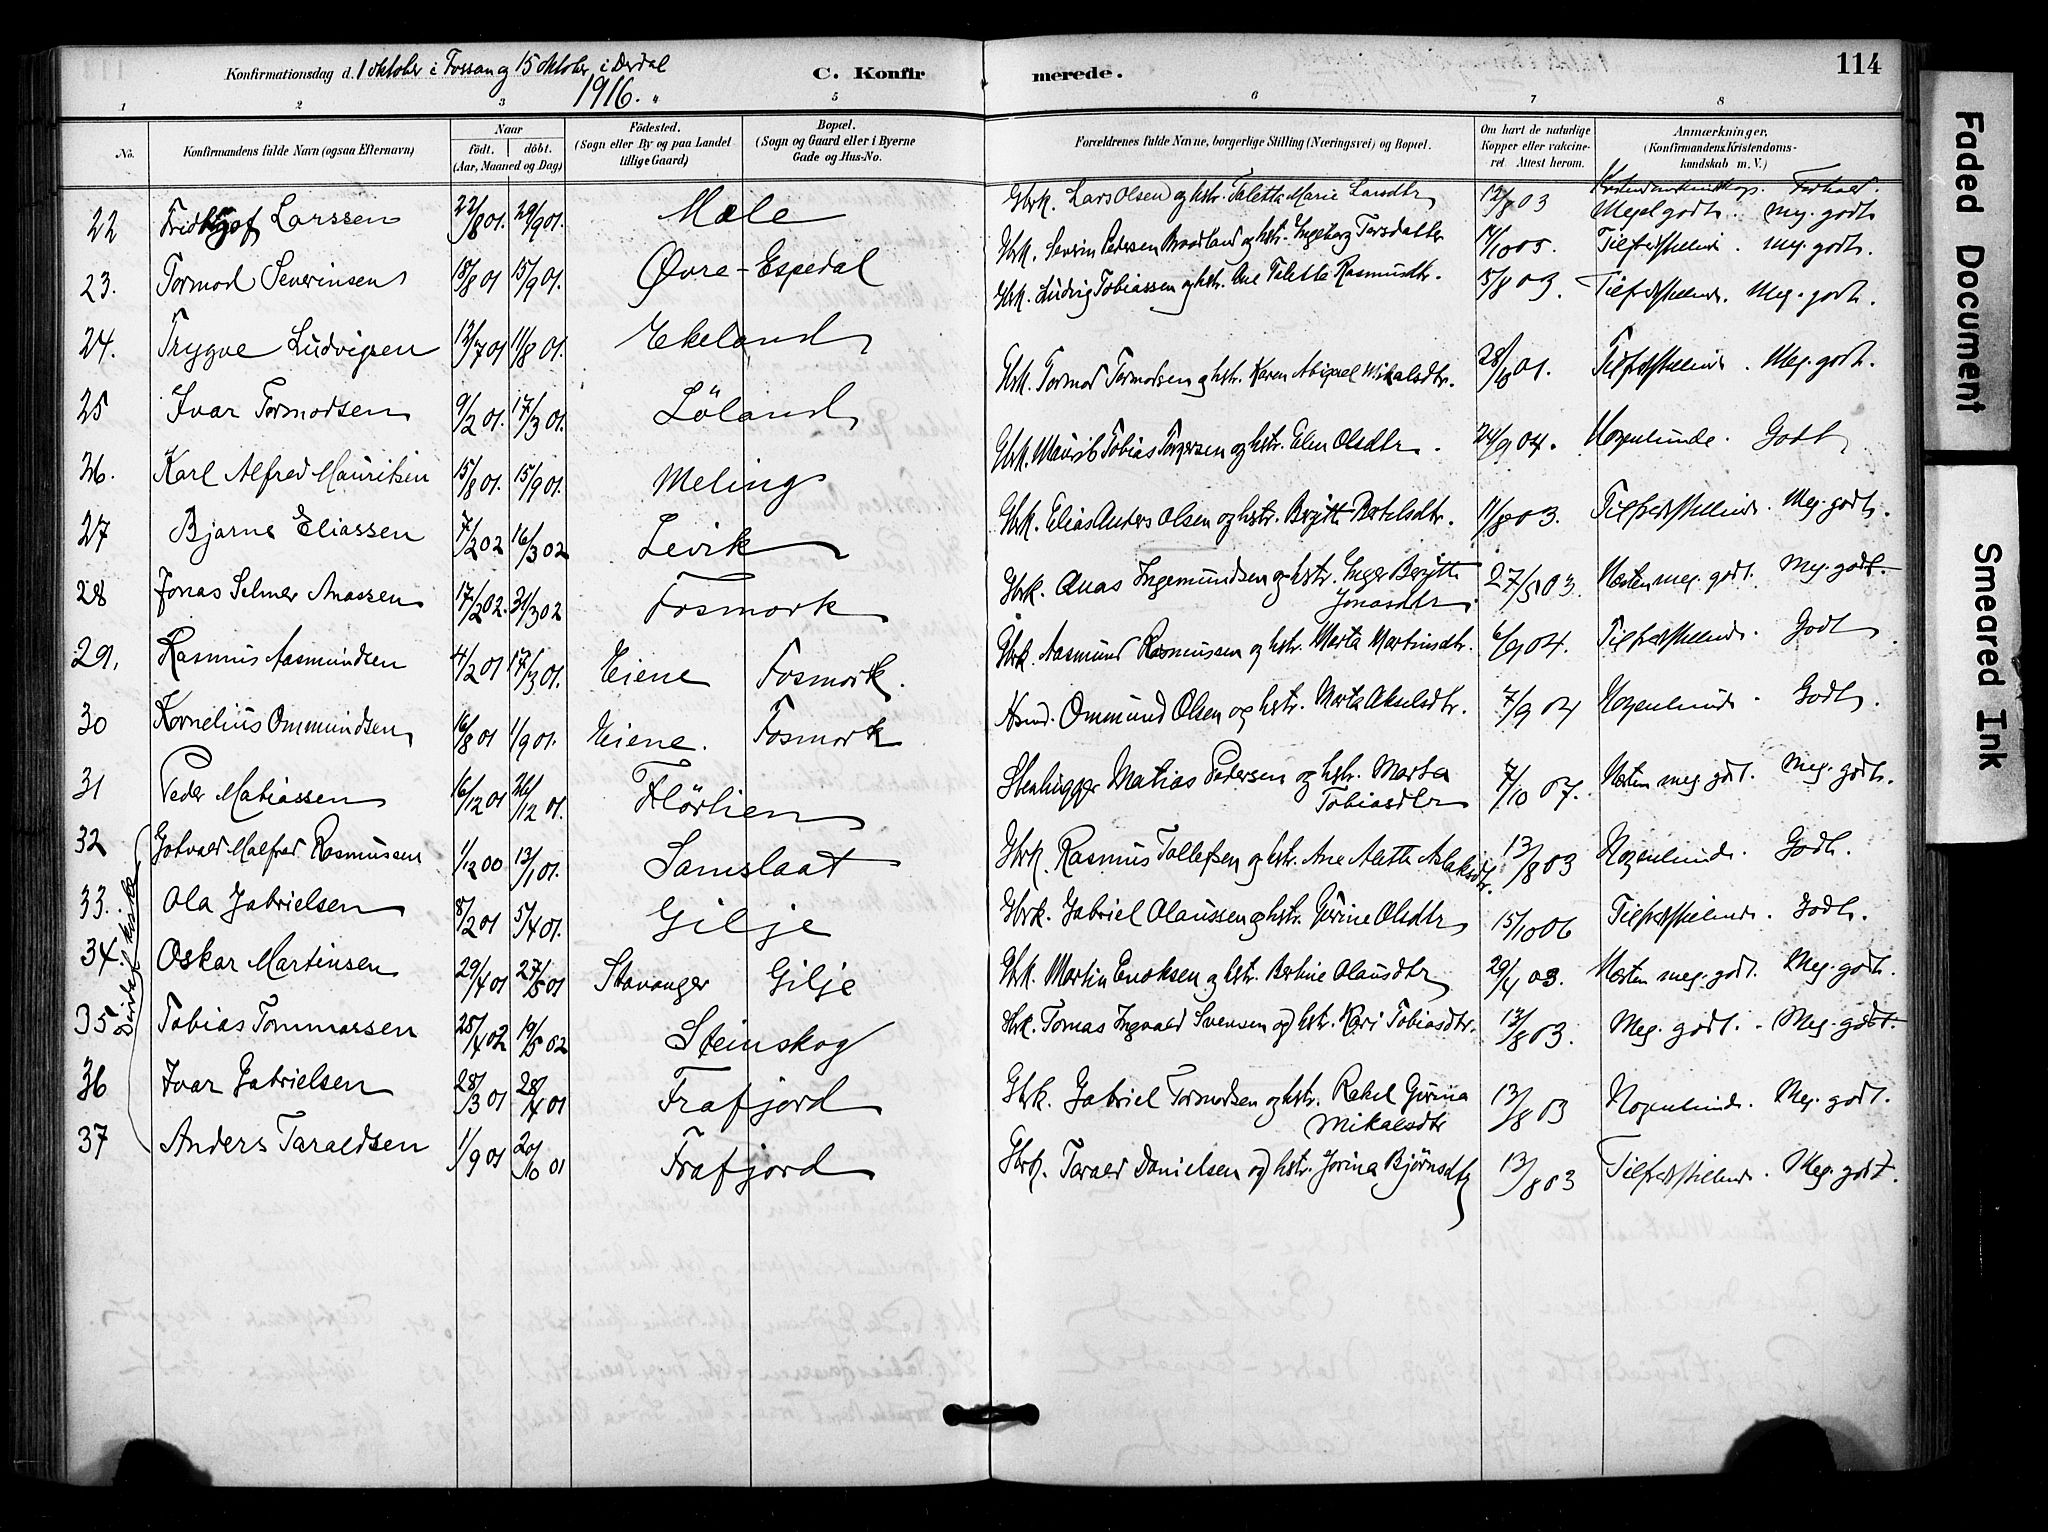 Konfirmationsdag d. 1 oktober i Fossan og 15 oktober i Dirdal
1916.
C. Konfirmerede.
114
1 2 3 4 5 6 7 8
No. Konfirmandens fulde Navn (ogsaa Efternavn) Naar født. døbt. (Aar, Maaned og Dag) Födested. (Sogn eller By og paa Landet tillige Gaard) Bopæl. (Sogn og Gaard eller i Byerne Gade og Hus-No. Forældrenes fulde Navne, borgerlige Stilling (Næringsvei) og Bopæl. Om havt de naturlige Kopper eller vakcineret Attest herom. Anmærkninger, (Konfirmandens Kristendomskundskab m. V.)
Kristendomskundskap. Forhold.
22 Fridtjof Larssen 22/8 01. 29/9 01. Mæle Gbrk. Lars Olsen og hstr. Taletta Marie Larsdtr 12/8 03 Meget godt. meg. godt
23. Tormod Severinsen 18/8 01 15/9 01. Øvre-Espedal Gbrk. Severin Pedersen Braadland og hstr. Ingeborg Tarsdatter 14/10 05. Tilfredsstillende. meg. godt.
24. Trygve Ludvigsen 12/7 01 11/8 01. Ekeland Gbrk. Ludvig Tobiassen og hstr. Ane Talette Rasmusdtr. 15/8 03. Tilfredsstillende. Meg. godt.
25 Ivar Tormodsen 9/2 01. 17/3 01. Löland Gbrk. Tormod Tormodsen og hstr. Karen Abigael Mikalsdtr. 28/10 01. Tilfredsstillende. Meg. godt.
26. Karl Alfred Mauritsen 15/8 01. 15/9 01. Meling Gbrk. Maurits Tobias Torgersen og hstr. Elen Olsdtr. 24/9 04. Nogenlunde. Godt
27 Bjarne Eliassen 7/2 02 16/3 02 Levik Gbrk. Elias Anders Olsen og hstr. Bergitte Bertelsdtr. 11/8 03. Tilfredsstillende. Meg. godt.
28 Jonas Selmer Anassen 17/2 02. 31/3 02 Fosmork Gbrk. Anas Ingemundsen og hstr. Inger Bergitte Jonasdtr 27/5 03. Næsten meg. godt. Meg. godt.
29. Rasmus Aasmundsen 4/2 01 17/3 01. Eiene Fosmork. Gbrk. Aasmund Rasmussen og hstr. Marta Martinsdtr. 6/9 04. Tilfredsstillende. Godt
30 Kornelius Ommundsen 16/8 01 1/9 01. Eiene. Fosmork Ommund Olsen og hstr. Marta Akselsdtr. 7/9 04 Nogenlunde. Godt.
31 Peder Matiassen 16/12 01 26/12 01. Flörlien Stenhugger Matias Pedersen og hstr. Marta Tobiasdtr 7/10 07. Næsten meg. godt. Meg. godt.
Dirdal kirke
32 Gotvald Malfred Rasmussen 1/12 00 13/1 01. Samslaat Gbrk. Rasmus Tollefsen og hstr. Ane Alette Aslaksdtr. 13/8 03 Nogenlunde. Godt.
33. Ola Gabrielsen 8/2 01 5/4 01. Gilje Gbrk. Gabriel Olaussen og hstr. Gurine Olsdtr 15/10 06 Tilfredsstillende. Godt.
34. Oskar Martinsen 29/4 01 27/5 01 Stavanger Gilje Gbrk. Martin Enoksen og hstr. Bertine Olausdtr 29/4 03. Næsten meg. godt. Meg. godt.
35 Tobias Tommassen 25/4 02 19/5 02 Steinskog Gbrk. Tomas Ingvald Svensen og hstr. Kari Tobiasdtr. 13/8 03. Meg. godt. Meg. godt.
36 Ivar Gabrielsen 28/3 01 28/4 01 Frafjord Gbrk. Gabriel Tormodsen og hstr. Rakel Gurina Mikalsdtr 13/8 03 Nogenlunde. Meg. godt.
37 Anders Taraldsen 1/9 01 20/10 01 Frafjord Gbrk. Tarald Danielsen og hstr. Jorina Bjørnsdtr 13/8 03 Tilfredsstillende. Meg. godt.
Faded Document
Smeared Ink